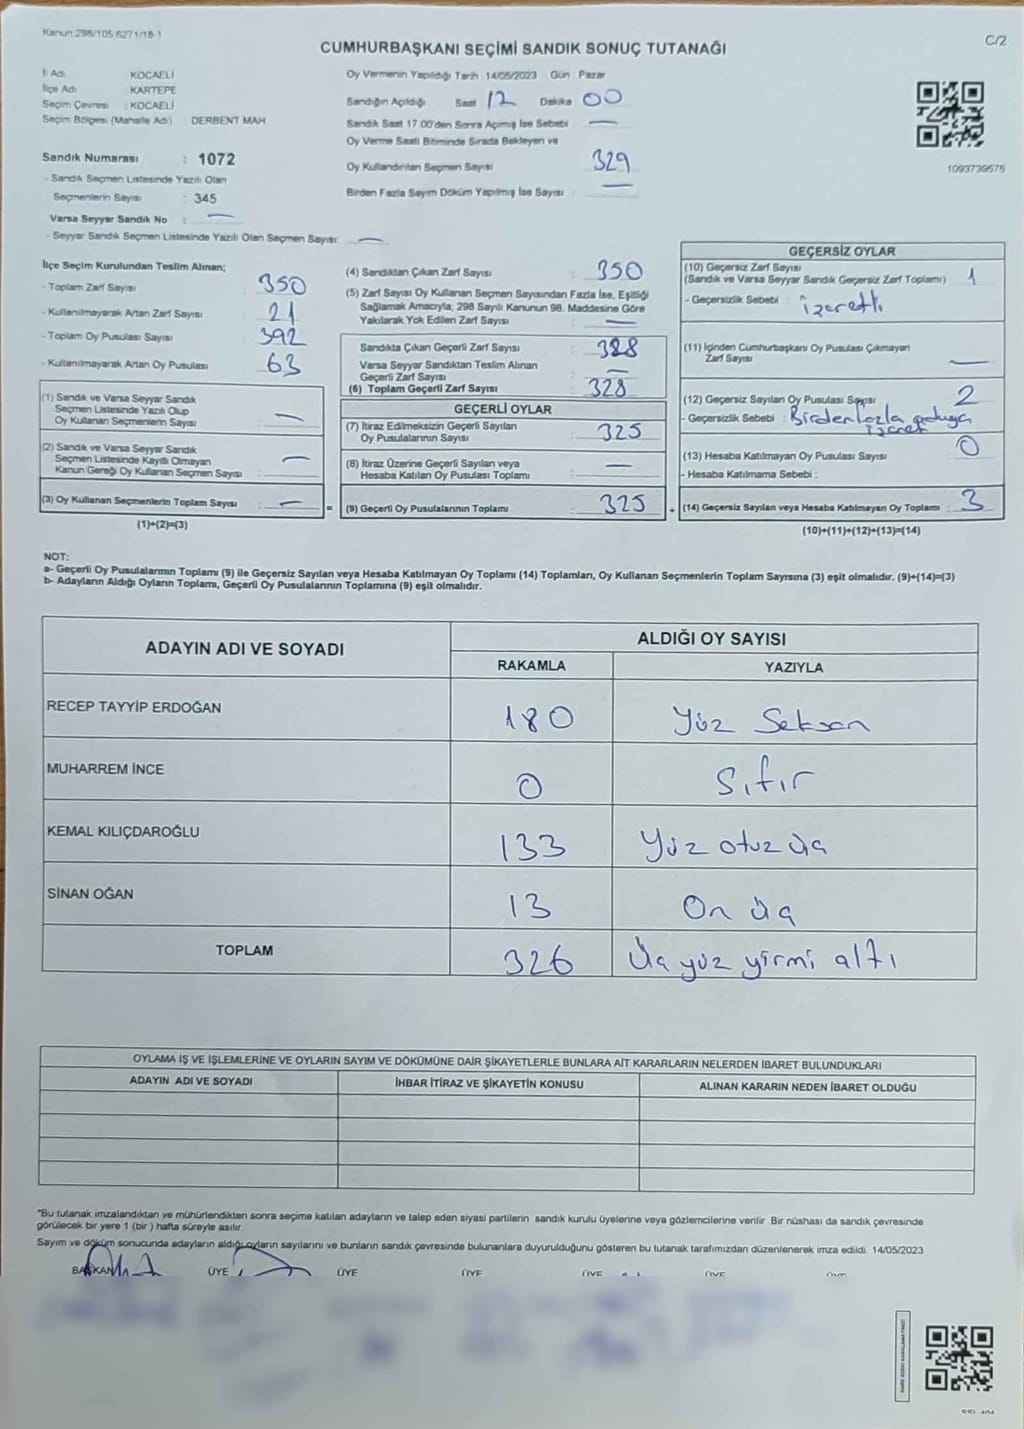 Kanun 298/105,6271/18-1
C/2
CUMHURBAŞKANI SEÇİMİ SANDIK SONUÇ TUTANAĞI
İl Adı : KOCAELİ
İlçe Adı : KARTEPE
Seçim Çevresi : KOCAELİ
Seçim Bölgesi (Mahalle Adı) : DERBENT MAH
Sandık Numarası : 1072
- Sandık Seçmen Listesinde Yazılı Olan
Seçmenlerin Sayısı : 345
Varsa Seyyar Sandık No : —
- Seyyar Sandık Seçmen Listesinde Yazılı Olan Seçmen Sayısı: —
Oy Vermenin Yapıldığı Tarih 14/05/2023 Gün : Pazar
Sandığın Açıldığı Saat 12 Dakika 00
Sandık Saat 17 00'den Sonra Açımış İse Sebebi : —
Oy Verme Saati Bitiminde Sırada Bekleyen ve
Oy Kullandırılan Seçmen Sayısı : 329
Birden Fazla Sayım Döküm Yapılmış İse Sayısı : —
1093739575
İlçe Seçim Kurulundan Teslim Alınan;
- Toplam Zarf Sayısı : 350
- Kullanılmayarak Artan Zarf Sayısı : 21
- Toplam Oy Pusulası Sayısı : 392
- Kullanılmayarak Artan Oy Pusulası : 63
(1) Sandık ve Varsa Seyyar Sandık
Seçmen Listesinde Yazılı Olup
Oy Kullanan Seçmenlerin Sayısı : —
(2) Sandık ve Varsa Seyyar Sandık
Seçmen Listesinde Kayıtlı Olmayan
Kanun Gereği Oy Kullanan Seçmen Sayısı : —
(3) Oy Kullanan Seçmenlerin Toplam Sayısı : —
(1)+(2)=(3)
(4) Sandıktan Çıkan Zarf Sayısı : 350
(5) Zarf Sayısı Oy Kullanan Seçmen Sayısından Fazla İse, Eşitliği
Sağlamak Amacıyla, 298 Sayılı Kanunun 98. Maddesine Göre
Yakılarak Yok Edilen Zarf Sayısı : —
Sandıkta Çıkan Geçerli Zarf Sayısı : 328
Varsa Seyyar Sandıktan Teslim Alınan
Geçerli Zarf Sayısı : —
(6) Toplam Geçerli Zarf Sayısı : 328
GEÇERLİ OYLAR
(7) İtiraz Edilmeksizin Geçerli Sayılan
Oy Pusulalarının Sayısı : 325
(8) İtiraz Üzerine Geçerli Sayılan veya
Hesaba Katılan Oy Pusulası Toplamı : —
= (9) Geçerli Oy Pusulalarının Toplamı : 325
GEÇERSİZ OYLAR
(10) Geçersiz Zarf Sayısı
(Sandık ve Varsa Seyyar Sandık Geçersiz Zarf Toplamı) : 1
- Geçersizlik Sebebi : İzeretli
(11) İçinden Cumhurbaşkanı Oy Pusulası Çıkmayan
Zarf Sayısı : —
(12) Geçersiz Sayılan Oy Pusulası Sayısı : 2
- Geçersizlik Sebebi : Birden fazla
(13) Hesaba Katılmayan Oy Pusulası Sayısı : 0
- Hesaba Katılmama Sebebi :
+ (14) Geçersiz Sayılan veya Hesaba Katılmayan Oy Toplamı : 3
(10)+(11)+(12)+(13)=(14)
NOT:
a- Geçerli Oy Pusulalarının Toplamı (9) ile Geçersiz Sayılan veya Hesaba Katılmayan Oy Toplamı (14) Toplamları, Oy Kullanan Seçmenlerin Toplam Sayısına (3) eşit olmalıdır. (9)+(14)=(3)
b- Adayların Aldığı Oyların Toplamı, Geçerli Oy Pusulalarının Toplamına (9) eşit olmalıdır.
ADAYIN ADI VE SOYADI
ALDIĞI OY SAYISI
RAKAMLA YAZIYLA
RECEP TAYYİP ERDOĞAN 180 Yüz Seksen
MUHARREM İNCE 0 Sıfır
KEMAL KILIÇDAROĞLU 133 Yüz otuz üç
SİNAN OĞAN 13 On üç
TOPLAM 326 Üç yüz yirmi altı
OYLAMA İŞ VE İŞLEMLERİNE VE OYLARIN SAYIM VE DÖKÜMÜNE DAİR ŞİKAYETLERLE BUNLARA AİT KARARLARIN NELERDEN İBARET BULUNDUKLARI
ADAYIN ADI VE SOYADI İHBAR İTİRAZ VE ŞİKAYETİN KONUSU ALINAN KARARIN NEDEN İBARET OLDUĞU
"Bu tutanak imzalandıktan ve mühürlendikten sonra seçime katılan adayların ve talep eden siyasi partilerin sandık kurulu üyelerine veya gözlemcilerine verilir. Bir nüshası da sandık çevresinde
görülecek bir yere 1 (bir) hafta süreyle asılır.
Sayım ve döküm sonucunda adayların aldığı oyların sayılarını ve bunların sandık çevresinde bulunanlara duyurulduğunu gösteren bu tutanak tarafımızdan düzenlenerek imza edildi. 14/05/2023
BAŞKAN ÜYE ÜYE ÜYE ÜYE ÜYE